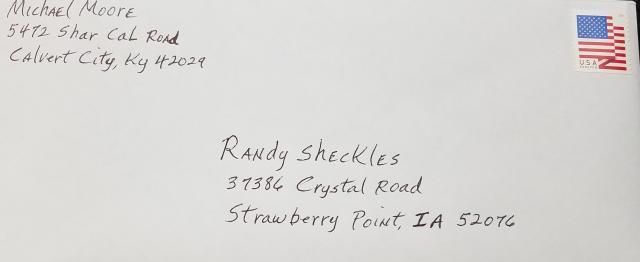 Michael Moore
5472 Shar Cal Road
Calvert City, Ky 42029
USA
Randy Sheckles
37386 Crystal Road
Strawberry Point, IA 52076